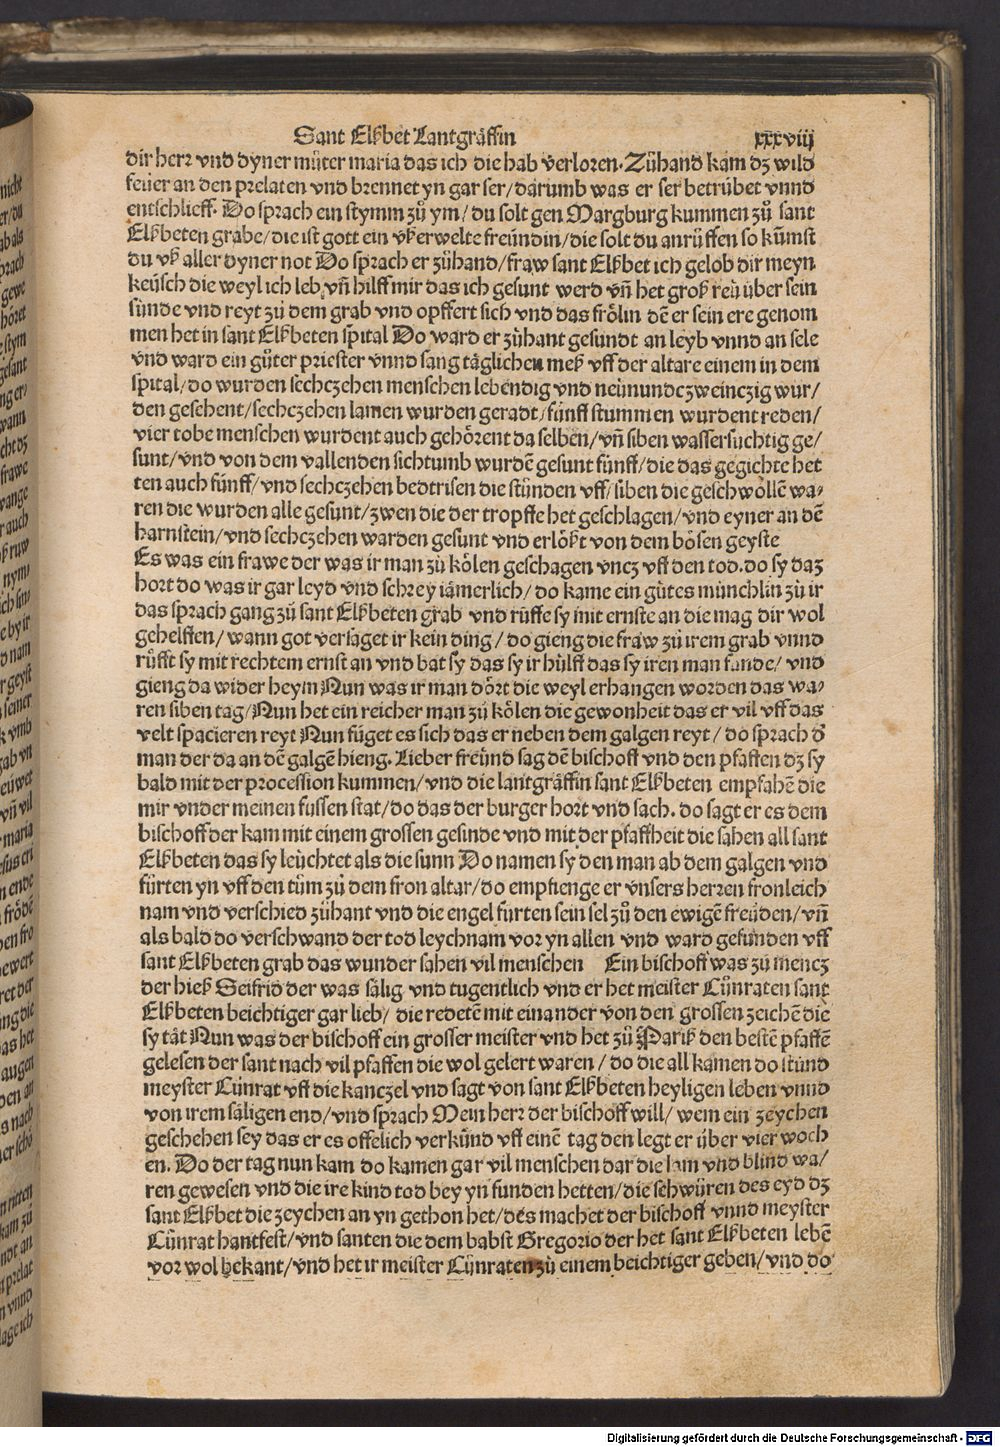 Sant Elßbet Lantgräffin xxxviij
dir herr vnd dyner můter maria das ich die hab verloren. Zůhand kam dz wild
feüer an den prelaten vnd brennet yn gar ser/darumb was er ser betrübet vnnd
entschlieff. Do sprach ein stymm zů ym/du solt gen Margburg kummen zů sant
Elßbeten grabe/die ist gott ein vßerwelte freündin/die solt du anrüffen so kūmst
du vß aller dyner not Do sprach er zůhand/fraw sant Elßbet ich gelob dir meyn
keüsch die weyl ich leb vñ hilff mir das ich gesunt werd vñ het groß reü über sein
sünde vnd reyt zů dem grab vnd opffert sich vnd das frölin dē er sein ere genom
men het in sant Elßbeten spital Do ward er zůhant gesundt an leyb vnnd an sele
vnd ward ein gůter priester vnnd sang täglichen meß vff der altare einem in dem
spital/do wurden sechczehen menschen lebendig vnd neünundczweinczig wur/
den gesehent/sechczehen lamen wurden geradt/fünff stummen wurdent reden/
vier tobe menschen wurdent auch gehörent da selben/vñ siben wassersuchtig ge/
sunt/vnd von dem vallenden sichtumb wurdē gesunt fünff/die das gegichte het
ten auch fünff/vnd sechczehen bedtrisen die stůnden vff/siben die geschwöllē wa/
ren die wurden alle gesunt/zwen die der tropffe het geschlagen/vnd eyner an dē
harnstein/vnd sechczehen warden gesunt vnd erlößt von dem bösen geyste
Es was ein frawe der was ir man zů kölen geschagen vncz vff den tod. do sy daz
hort do was ir gar leyd vnd schrey iämerlich/do kame ein gůtes münchlin zů ir
das sprach gang zů sant Elßbeten grab vnd rüffe sy mit ernste an die mag dir wol
gehelffen/wann got versaget ir kein ding/do gieng die fraw zů irem grab vnnd
rüfft sy mit rechtem ernst an vnd bat sy das sy ir hülff das sy iren man funde/vnd
gieng da wider heym Nun was ir man dört die weyl erhangen worden das wa/
ren siben tag/Nun het ein reicher man zů kölen die gewonheit das er vil vff das
velt spacieren reyt Nun füget es sich das er neben dem galgen reyt/do sprach d̄
man der da an dē galgē hieng. Lieber freünd sag dē bischoff vnd den pfaffen dz sy
bald mit der procession kummen/vnd die lantgräffin sant Elßbeten empfahē die
mir vnder meinen füssen stat/do das der burger hort vnd sach. do sagt er es dem
bischoff der kam mit einem grossen gesinde vnd mit der pfaffheit die sahen all sant
Elßbeten das sy leüchtet als die sunn Do namen sy den man ab dem galgen vnd
fürten yn vff den tům zů dem fron altar/do empfienge er vnsers herren fronleich
nam vnd verschied zůhant vnd die engel fürten sein sel zů den ewigē freüden/vñ
als bald do verschwand der tod leychnam vor yn allen vnd ward gefunden vff
sant Elßbeten grab das wunder sahen vil menschen Ein bischoff was zů mencz
der hieß Seifrid der was sälig vnd tugentlich vnd er het meister Cůnraten sant
Elßbeten beichtiger gar lieb/die redetē mit einander von den grossen zeichē die
sy tät Nun was der bischoff ein grosser meister vnd het zů Pariß den bestē pfaffē
gelesen der sant nach vil pfaffen die wol gelert waren/do die all kamen do stůnd
meyster Cůnrat vff die kanczel vnd sagt von sant Elßbeten heyligen leben vnnd
von irem säligen end/vnd sprach Mein herr der bischoff will/wem ein zeychen
geschehen sey das er es offelich verkünd vff einē tag den legt er über vier woch
en. Do der tag nun kam do kamen gar vil menschen dar die lam vnd blind wa/
ren gewesen vnd die ire kind tod bey yn funden hetten/die schwůren des eyd dz
sant Elßbet die zeychen an yn gethon het/des machet der bischoff vnnd meyster
Cůnrat hantfest/vnd santen die dem babst Gregorio der het sant Elßbeten lebē
vor wol bekant/vnd het ir meister Cůnraten zů einem beichtiger geben/vnd do
Digitalisierung gefördert durch die Deutsche Forschungsgemeinschaft - DFG